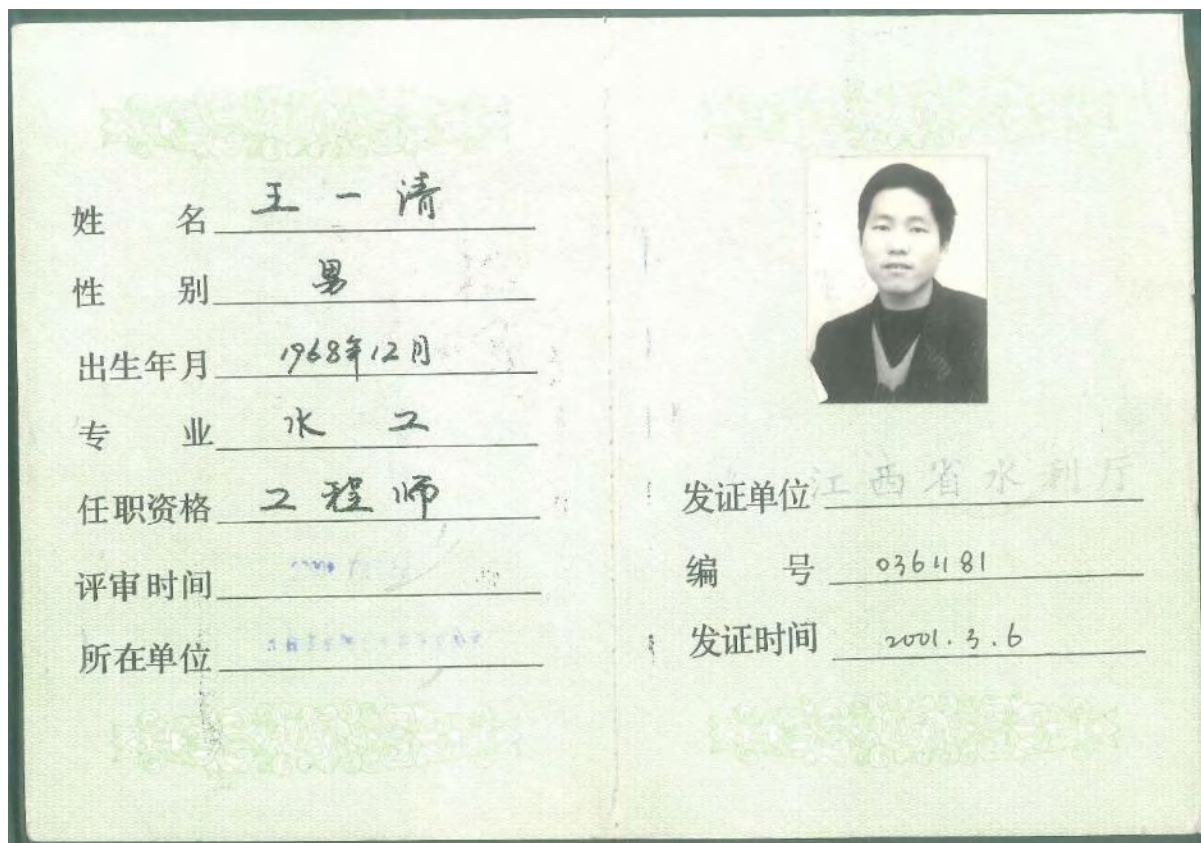 姓名 王一清
性别 男
出生年月 1968年12月
专业 水工
任职资格 工程师
评审时间
所在单位
发证单位 江西省水利厅
编号 0361181
发证时间 2001.3.6